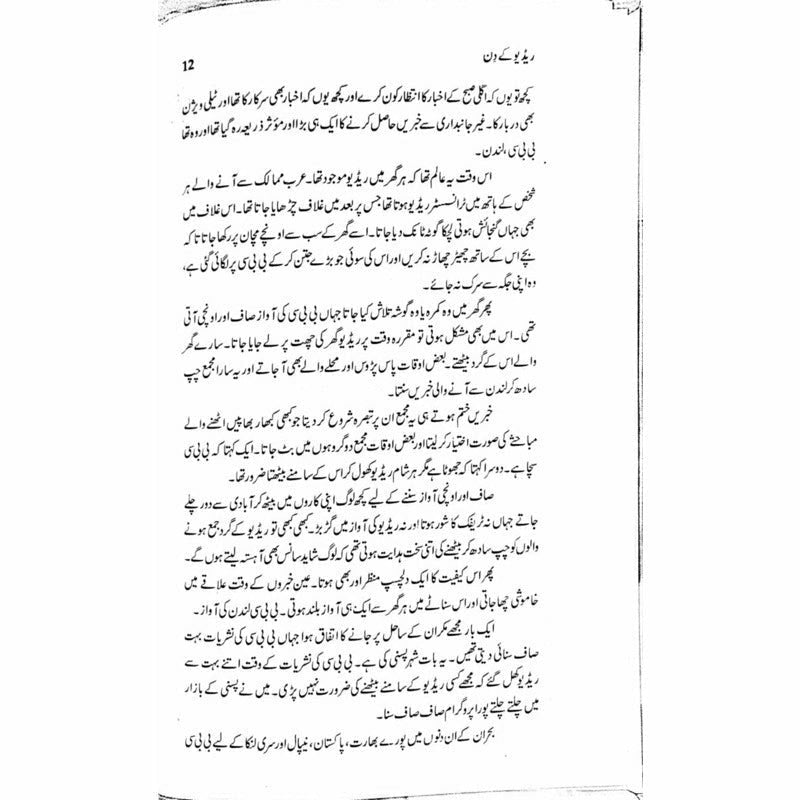 ریڈیو کے دِن
12
کچھ تو یوں کہ اگلی صبح کے اخبار کا انتظار کون کرے اور کچھ یوں کہ اخبار بھی سرکار کا تھا اور ٹیلی ویژن
بھی دربار کا۔ غیر جانبداری سے خبریں حاصل کرنے کا ایک ہی بڑا اور مؤثر ذریعہ رہ گیا تھا اور وہ تھا
بی بی سی، لندن۔
اس وقت یہ عالم تھا کہ ہر گھر میں ریڈیو موجود تھا۔ عرب ممالک سے آنے والے ہر
شخص کے ہاتھ میں ٹرانسسٹر ریڈیو ہوتا تھا جس پر بعد میں غلاف چڑھایا جاتا تھا۔ اس غلاف میں
بھی جہاں گنجائش ہوتی لچکا گوٹہ ٹانک دیا جاتا۔ اسے گھر کے سب سے اونچے مچان پر رکھا جاتا تا کہ
بچے اس کے ساتھ چھیڑ چھاڑ نہ کریں اور اس کی سوئی جو بڑے جتن کر کے بی بی سی پر لگائی گئی ہے،
وہ اپنی جگہ سے سرک نہ جائے۔
پھر گھر میں وہ کمرہ یا وہ گوشہ تلاش کیا جاتا جہاں بی بی سی کی آواز صاف اور اونچی آتی
تھی۔ اس میں بھی مشکل ہوتی تو مقررہ وقت پر ریڈیو گھر کی چھت پر لے جایا جاتا۔ سارے گھر
والے اس کے گرد بیٹھتے۔ بعض اوقات پاس پڑوس اور محلے والے بھی آ جاتے اور یہ سارا مجمع چپ
سادھ کر لندن سے آنے والی خبریں سنتا۔
خبریں ختم ہوتے ہی یہ مجمع ان پر تبصرہ شروع کر دیتا جو کبھی کبھار بھاپیں اٹھنے والے
مباحثے کی صورت اختیار کر لیتا اور بعض اوقات مجمع دو گروہوں میں بٹ جاتا۔ ایک کہتا کہ بی بی سی
سچا ہے۔ دوسرا کہتا کہ جھوٹا ہے مگر ہر شام ریڈیو کھول کر اس کے سامنے بیٹھتا ضرور تھا۔
صاف اور اونچی آواز سننے کے لیے کچھ لوگ اپنی کاروں میں بیٹھ کر آبادی سے دور چلے
جاتے جہاں نہ ٹریفک کا شور ہوتا اور نہ ریڈیو کی آواز میں گڑ بڑ۔ کبھی کبھی تو ریڈیو کے گرد جمع ہونے
والوں کو چپ سادھ کر بیٹھنے کی اتنی سخت ہدایت ہوتی تھی کہ لوگ شاید سانس بھی آہستہ لیتے ہوں گے۔
پھر اس کیفیت کا ایک دلچسپ منظر اور بھی ہوتا۔ عین خبروں کے وقت علاقے میں
خاموشی چھا جاتی اور اس سناٹے میں ہر گھر سے ایک ہی آواز بلند ہوتی۔ بی بی سی لندن کی آواز۔
ایک بار مجھے مکران کے ساحل پر جانے کا اتفاق ہوا جہاں بی بی سی کی نشریات بہت
صاف سنائی دیتی تھیں۔ یہ بات شہر پسنی کی ہے۔ بی بی سی کی نشریات کے وقت اتنے بہت سے
ریڈیو کھل گئے کہ مجھے کسی ریڈیو کے سامنے بیٹھنے کی ضرورت نہیں پڑی۔ میں نے پسنی کے بازار
میں چلتے چلتے پورا پروگرام صاف صاف سنا۔
بحران کے ان دنوں میں پورے بھارت، پاکستان، نیپال اور سری لنکا کے لیے بی بی سی